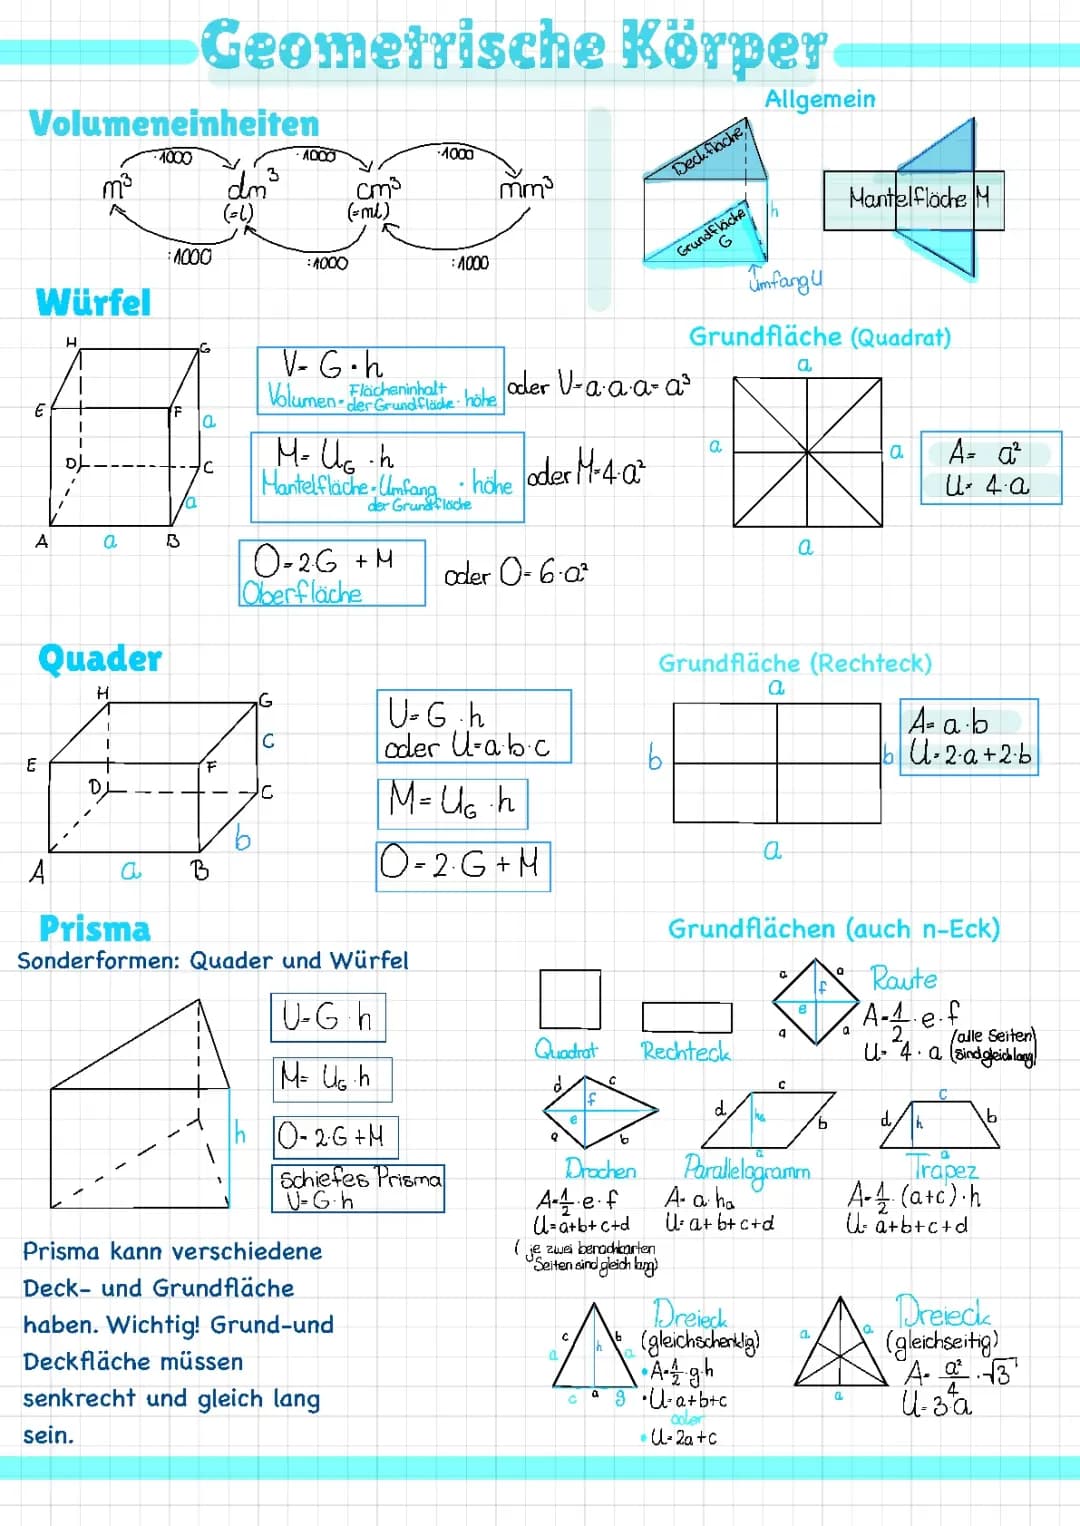 Geometrische Körper
Volumeneinheiten
·1000 ·1000 ·1000
m³ dm³ cm³ mm³
(=l) (=ml)
:1000 :1000 :1000
Allgemein
Deckfläche
Grundfläche
G
h
Umfang U
Mantelfläche M
Würfel
H G
E F
a
D C
a
A a B
V= G·h
Volumen= Flächeninhalt der Grundfläche · höhe
oder V=a·a·a=a³
M= U_G ·h
Mantelfläche=Umfang der Grundfläche · höhe
oder M=4·a²
O=2·G + M
Oberfläche
oder O=6·a²
Grundfläche (Quadrat)
a
a a
a
A= a²
U= 4·a
Quader
H G
c
E F
D C
b
A a B
U=G·h
oder U=a·b·c
M=U_G·h
O=2·G+M
Grundfläche (Rechteck)
a
b b
a
A=a·b
U=2·a+2·b
Prisma
Sonderformen: Quader und Würfel
h
U=G·h
M=U_G·h
O=2·G+M
schiefes Prisma
U=G·h
Prisma kann verschiedene
Deck- und Grundfläche
haben. Wichtig! Grund-und
Deckfläche müssen
senkrecht und gleich lang
sein.
Grundflächen (auch n-Eck)
Quadrat
Rechteck
a a
f
e
a a
Raute
A=1/2·e·f
U= 4·a (alle Seiten sind gleich lang)
d c
f
e
a b
Drachen
A=1/2·e·f
U=a+b+c+d
(je zwei benachbarten
Seiten sind gleich lang)
c
d hₐ b
a
Parallelogramm
A=a·hₐ
U=a+b+c+d
c
d h b
a
Trapez
A=1/2·(a+c)·h
U=a+b+c+d
c b
a h a
c a g
Dreieck
(gleichschenklig)
•A=1/2·g·h
•U=a+b+c
oder
•U=2a+c
a a
a
Dreieck
(gleichseitig)
A= a²/4·√3
U=3·a